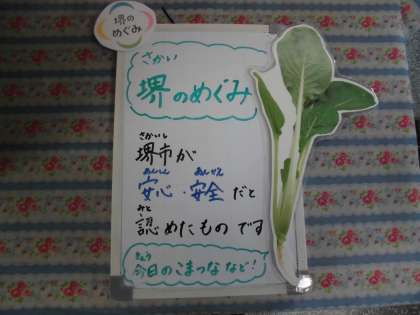 堺の
めぐみ
さかい
堺のめぐみ
さかいし
堺市が
あんしん あんぜん
安心・安全だと
みと
認めたものです
きょう
今日のこまつななど!